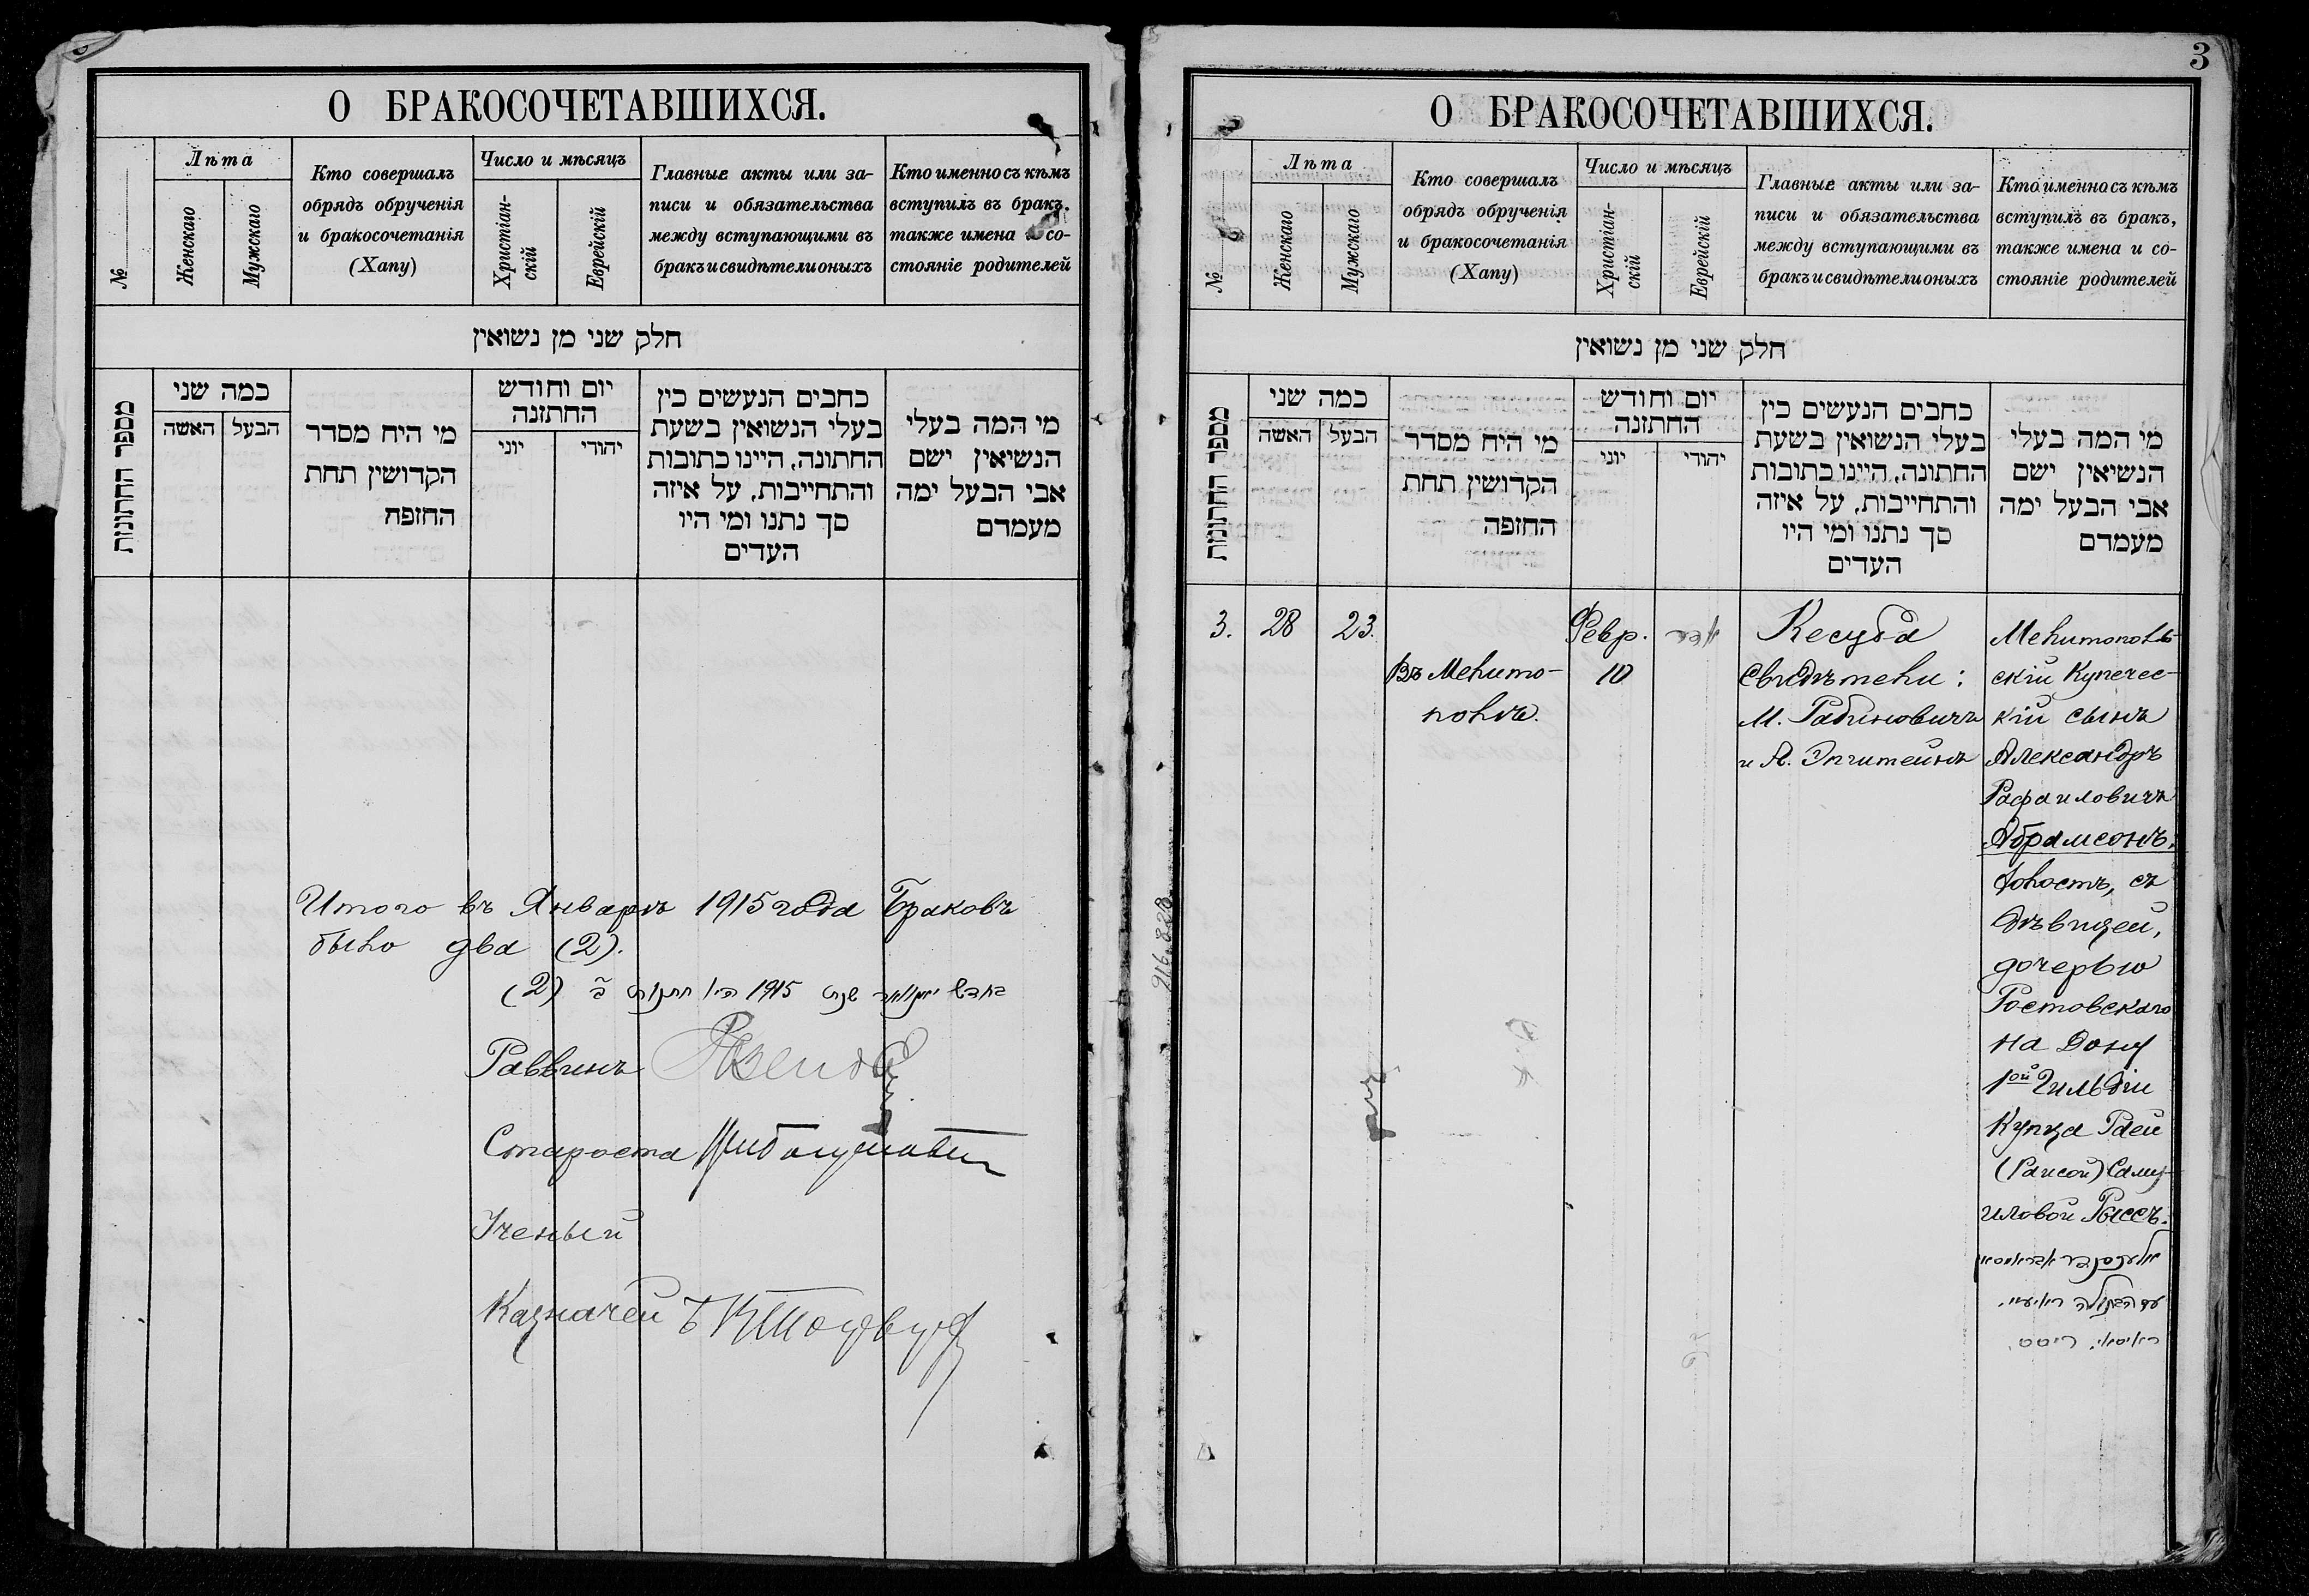 О БРАКОСОЧЕТАВШИХСЯ.
№
Лѣта
Женскаго
Мужскаго
Кто совершалъ
обрядъ обрученія
и бракосочетанія
(Хапу)
Число и мѣсяцъ
Христіан-
скій
Еврейскій
Главные акты или за-
писи и обязательства
между вступающими въ
бракъ и свидѣтели оныхъ
Кто именно съ кѣмъ
вступилъ въ бракъ,
также имена и со-
стояніе родителей
חלק שני מן נשואין
מספר החתונות
כמה שני
האשה
הבעל
מי היח מסדר
הקדושין תחת
החזפח
יום וחודש
החתזנה
יוני
יהודי
כחבים הנעשים כין
בעלי הנשואין בשעת
החתונה, היינו כתובות
והתחייבות, על איזה
סך נתנו ומי היו
העדים
מי המה בעלי
הנשיאין ישם
אבי הבעל ימה
מעמדם
Итого въ Январѣ 1915 года Браковъ
было два (2).
בחדש יאנואר שנת 1915 היו חתונות ב (2)
Раввинъ
Староста
Ученый
Казначей
3
О БРАКОСОЧЕТАВШИХСЯ.
№
Лѣта
Женскаго
Мужскаго
Кто совершалъ
обрядъ обрученія
и бракосочетанія
(Хапу)
Число и мѣсяцъ
Христіан-
скій
Еврейскій
Главные акты или за-
писи и обязательства
между вступающими въ
бракъ и свидѣтели оныхъ
Кто именно съ кѣмъ
вступилъ въ бракъ,
также имена и со-
стояніе родителей
חלק שני מן נשואין
מספר החתונות
כמה שני
האשה
הבעל
מי היח מסדר
הקדושין תחת
החזפה
יום וחודש
החתזנה
יוני
יהודי
כחבים הנעשים כין
בעלי הנשואין בשעת
החתונה, היינו כתובות
והתחייבות, על איזה
סך נתנו ומי היו
העדים
מי המה בעלי
הנשיאין ישם
אבי הבעל ימה
מעמדם
3.
28
23.
Въ Мелито-
полѣ.
Февр.
10
Кесуба
Свидѣтели:
М. Рабиновичъ
и Я. Эпштейнъ
Мелитополь-
скій Купечес-
кій сынъ
Александръ
Рафаиловичъ
Абрамсонъ,
холостъ, съ
дѣвицей,
дочерью
Ростовскаго
на Дону
1ой Гильдіи
Купца Раей
(Раисой) Саму-
иловой Рыссъ.
אלעקסנדר אבראמסאן
עם הבתולה ראיעי.
ראיסאי. ריסס.
916.828